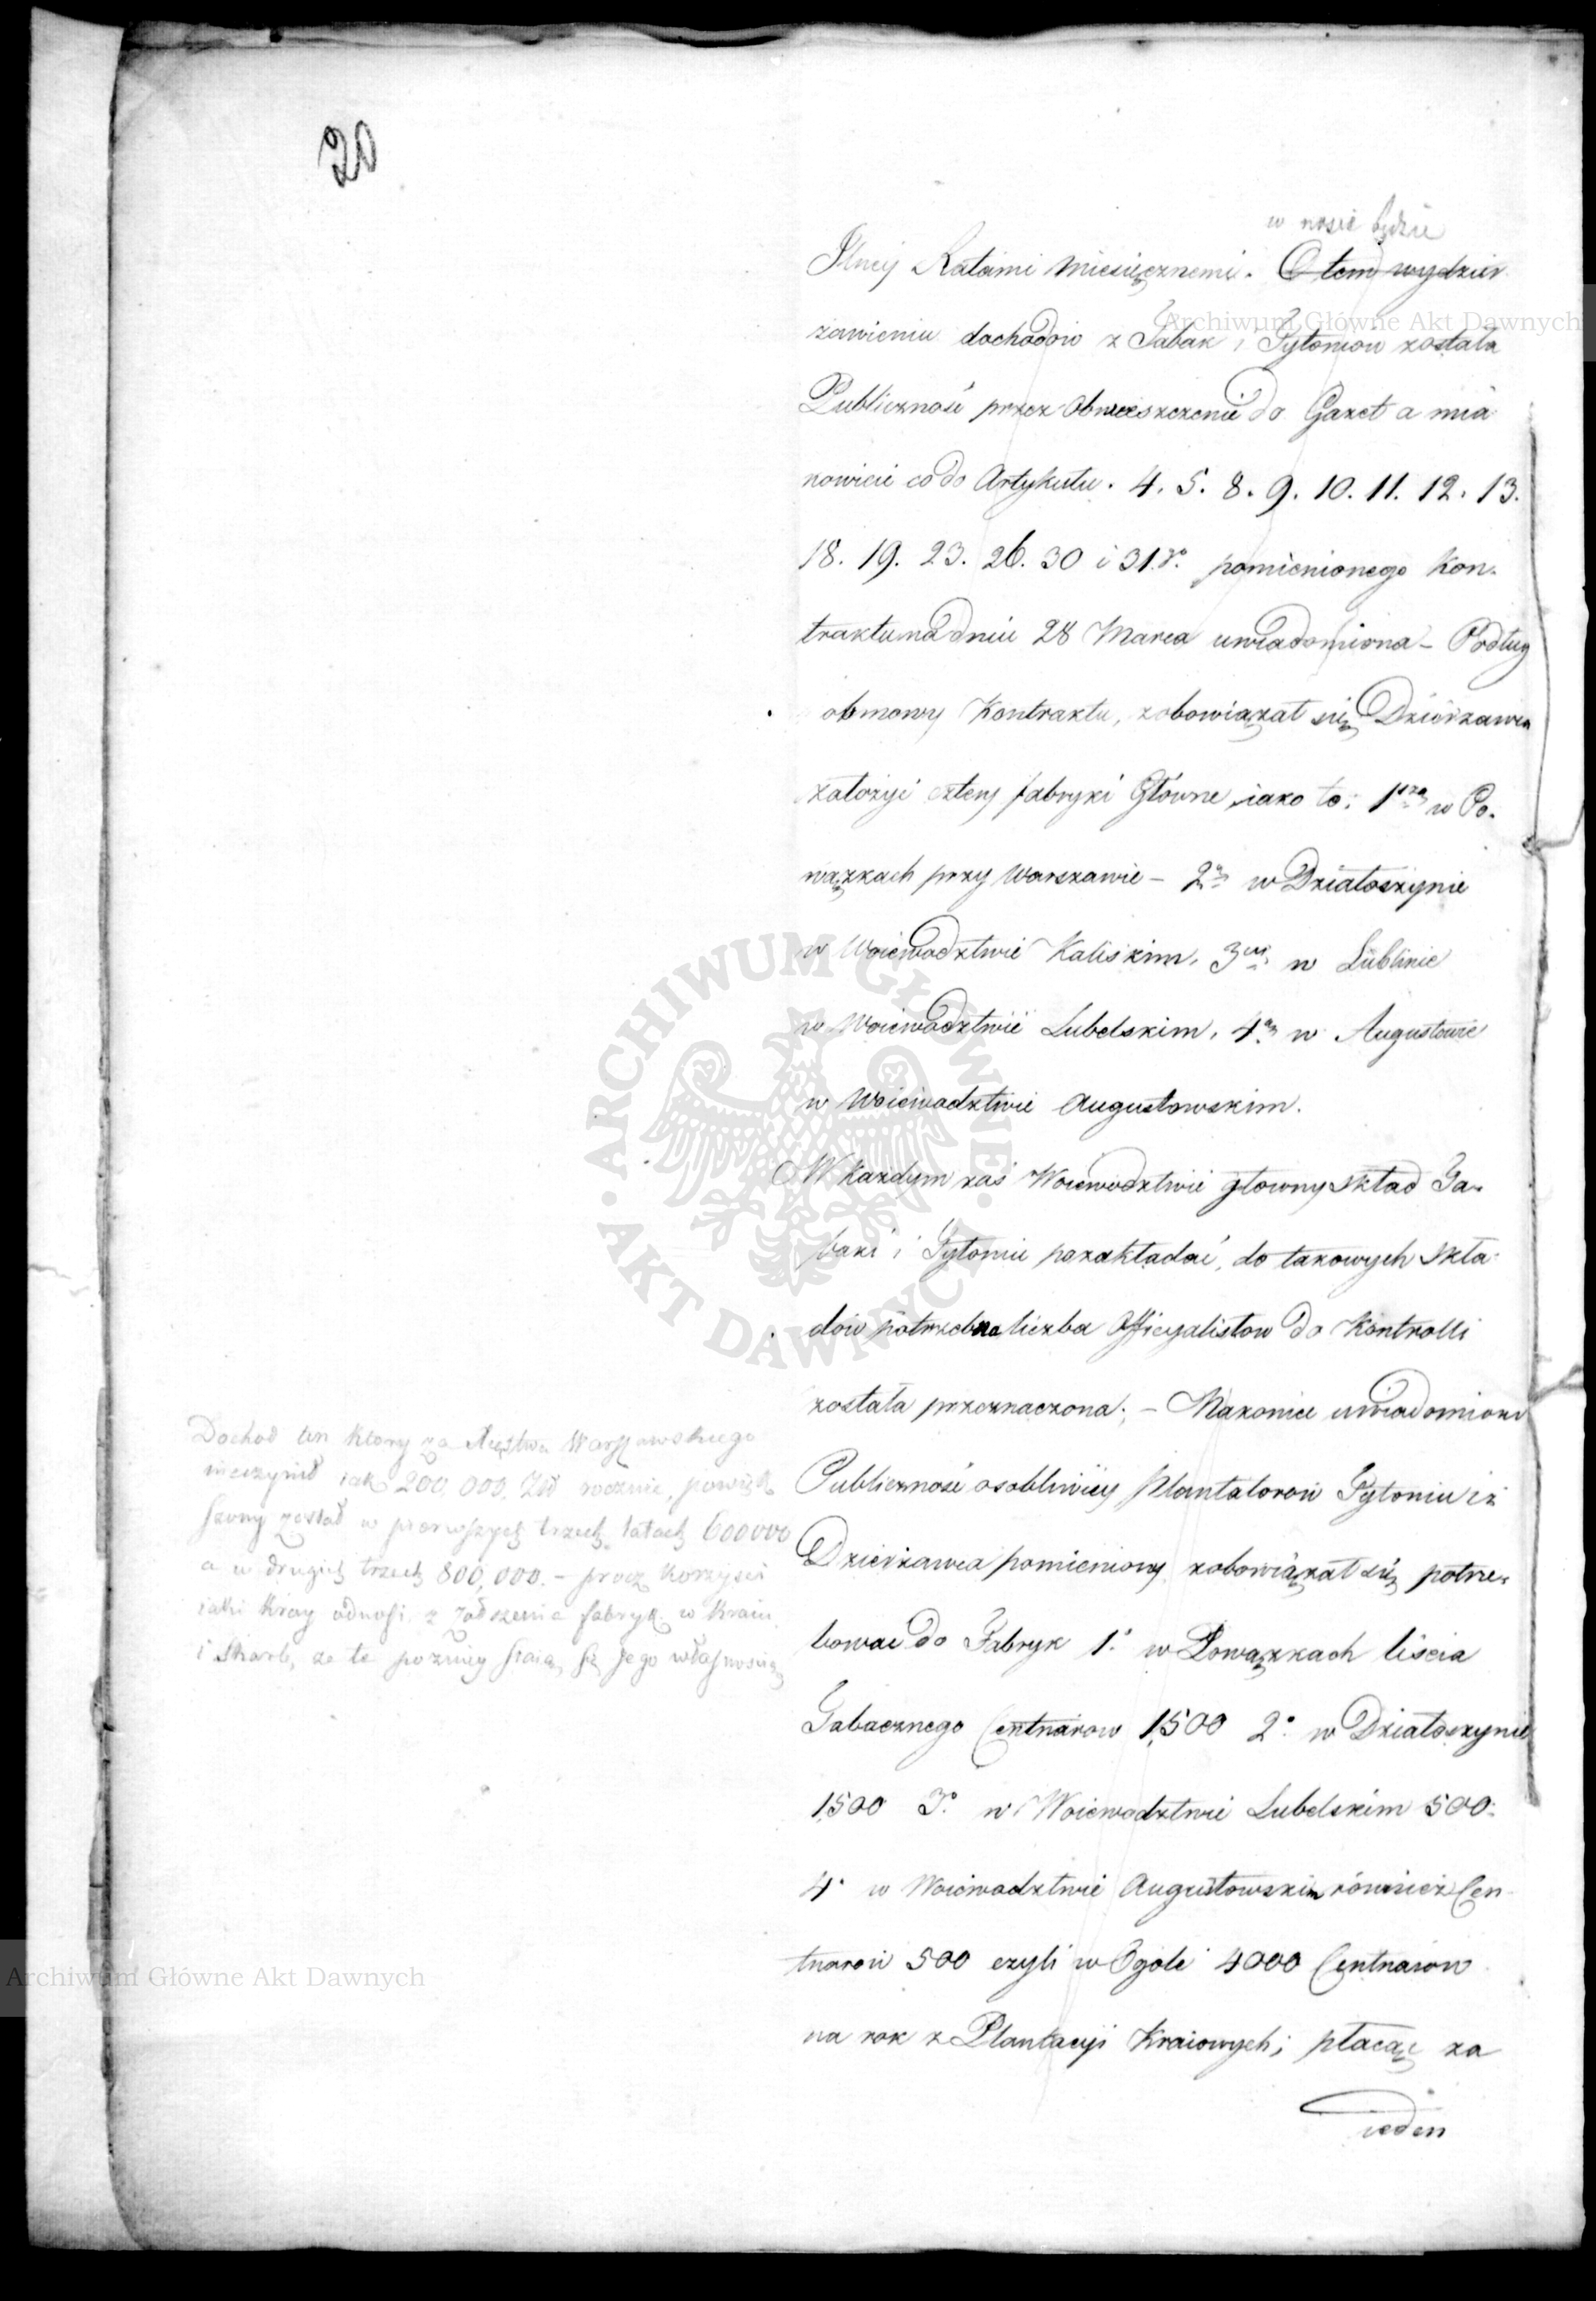 20
w nosić będzie
Ilney Ratami Miesięcznemi. O tem wydzier
żawieniu dochodow z Tabak i Tytoniow została
Publiczność przez Obwieszczenie do Gazet a mia
nowicie co do Artykułu. 4. 5. 8. 9. 10. 11. 12. 13.
18. 19. 23. 26. 30 i 31.go pomienionego Kon-
traktu na dniu 28 Marca uwiadomiona – Podług
obmowy Kontraktu, zobowiązał się Dzierżawca
założyć cztery fabryki Główne, iako to: 1szą w Po-
wązkach przy Warszawie – 2gą w Działoszynie
w Woiewodztwie Kaliskim, 3cią w Lublinie
w Woiewodztwie Lubelskim, 4tą w Augustowie
w Woiewodztwie Augustowskim.
W każdym zaś Woiewodztwie głowny skład Ta-
baki i Tytoniu pozakładać, do takowych skła-
dow potrzebna liczba Officyalistow do Kontrolli
została przeznaczona; – Nakoniec uwiadomiono
Publiczność osobliwiey Plantatorow Tytoniu iż
Dzierżawca pomieniony zobowiązał się potrze-
bować do Fabryk 1o w Powązkach liścia
Tabacznego Centnarow 1,500 2o w Działoszynie
1,500 3o w Woiewodztwie Lubelskim 500.
4o w Woiewodztwie Augustowskim również Cen-
tnarow 500 czyli w Ogole 4000 Centnarow
na rok z Plantacyi Kraiowych; płacąc za
ieden
Dochod ten ktory za Xięstwa Warszawskiego
nieczynił iak 200,000. Złł rocznie, powięk
szony został w pierwszych trzech latach 600000
a w drugich trzech 800,000. – procz korzyści
iaki Kray odnosi z założenia fabryk w Kraiu
i Skarb, że te pozniey staią się Jego własnością
Archiwum Główne Akt Dawnych
ARCHIWUM GŁÓWNE · AKT DAWNYCH ·
Archiwum Główne Akt Dawnych